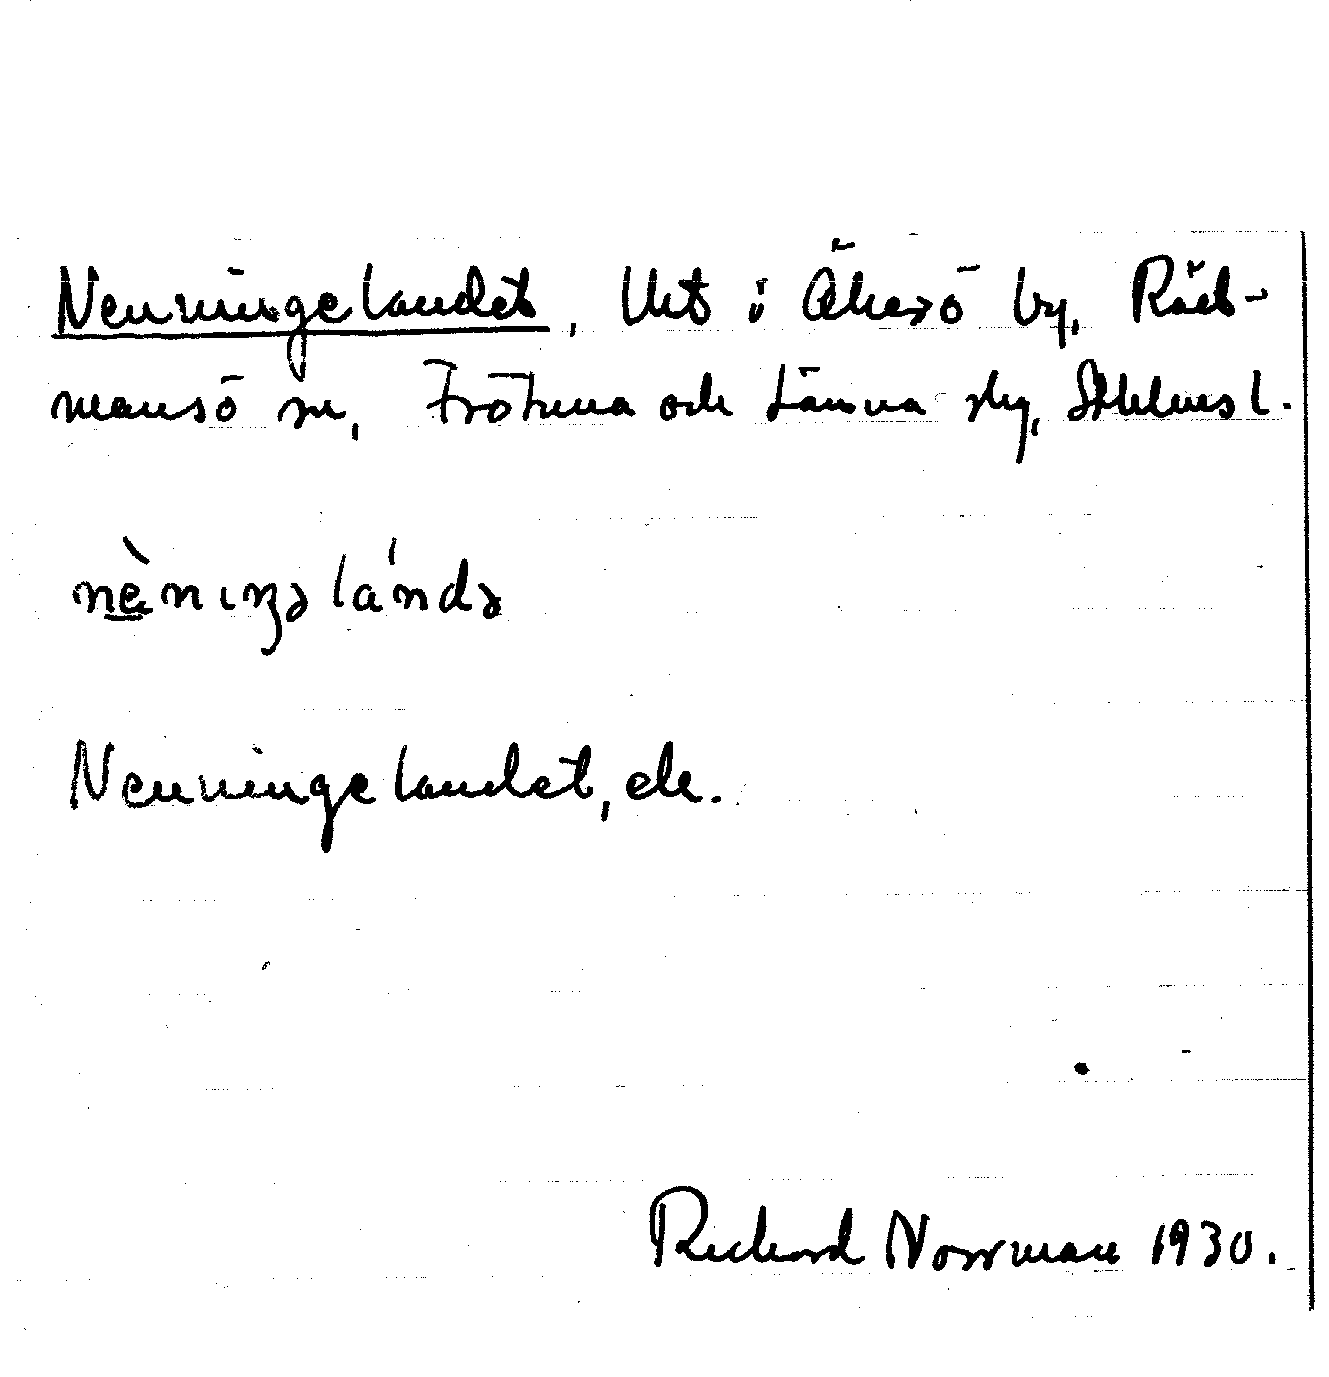 Nenningelandet, Utt i Åkerö by, Råd-
mansö sn, Frötuna och Länna skg, Sthlms l.
nèniŋəlándə
Nenningelandet, de.
Richard Norrman 1930.